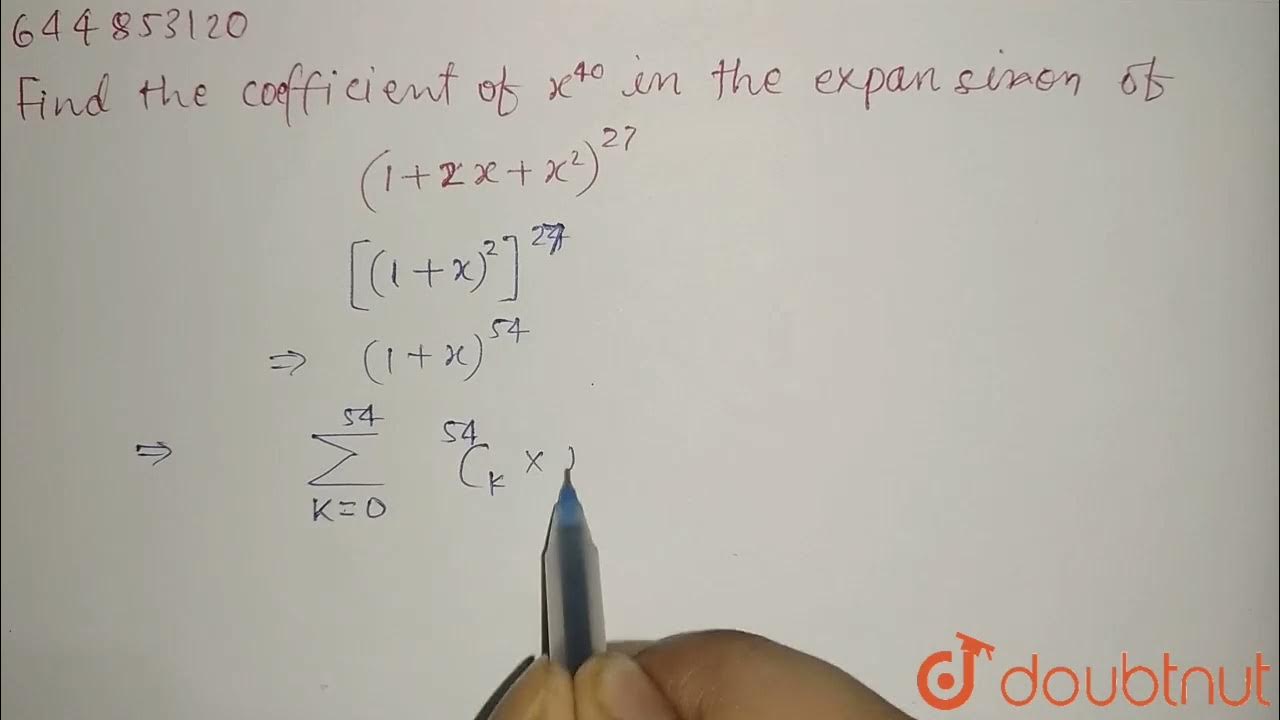 644853120
Find the coefficient of x⁴⁰ in the expansimon of
(1+2x+x²)²⁷
[(1+x)²]²⁷
⇒ (1+x)⁵⁴
54
⇒ ∑ ⁵⁴Cₖ ×
K=0
doubtnut